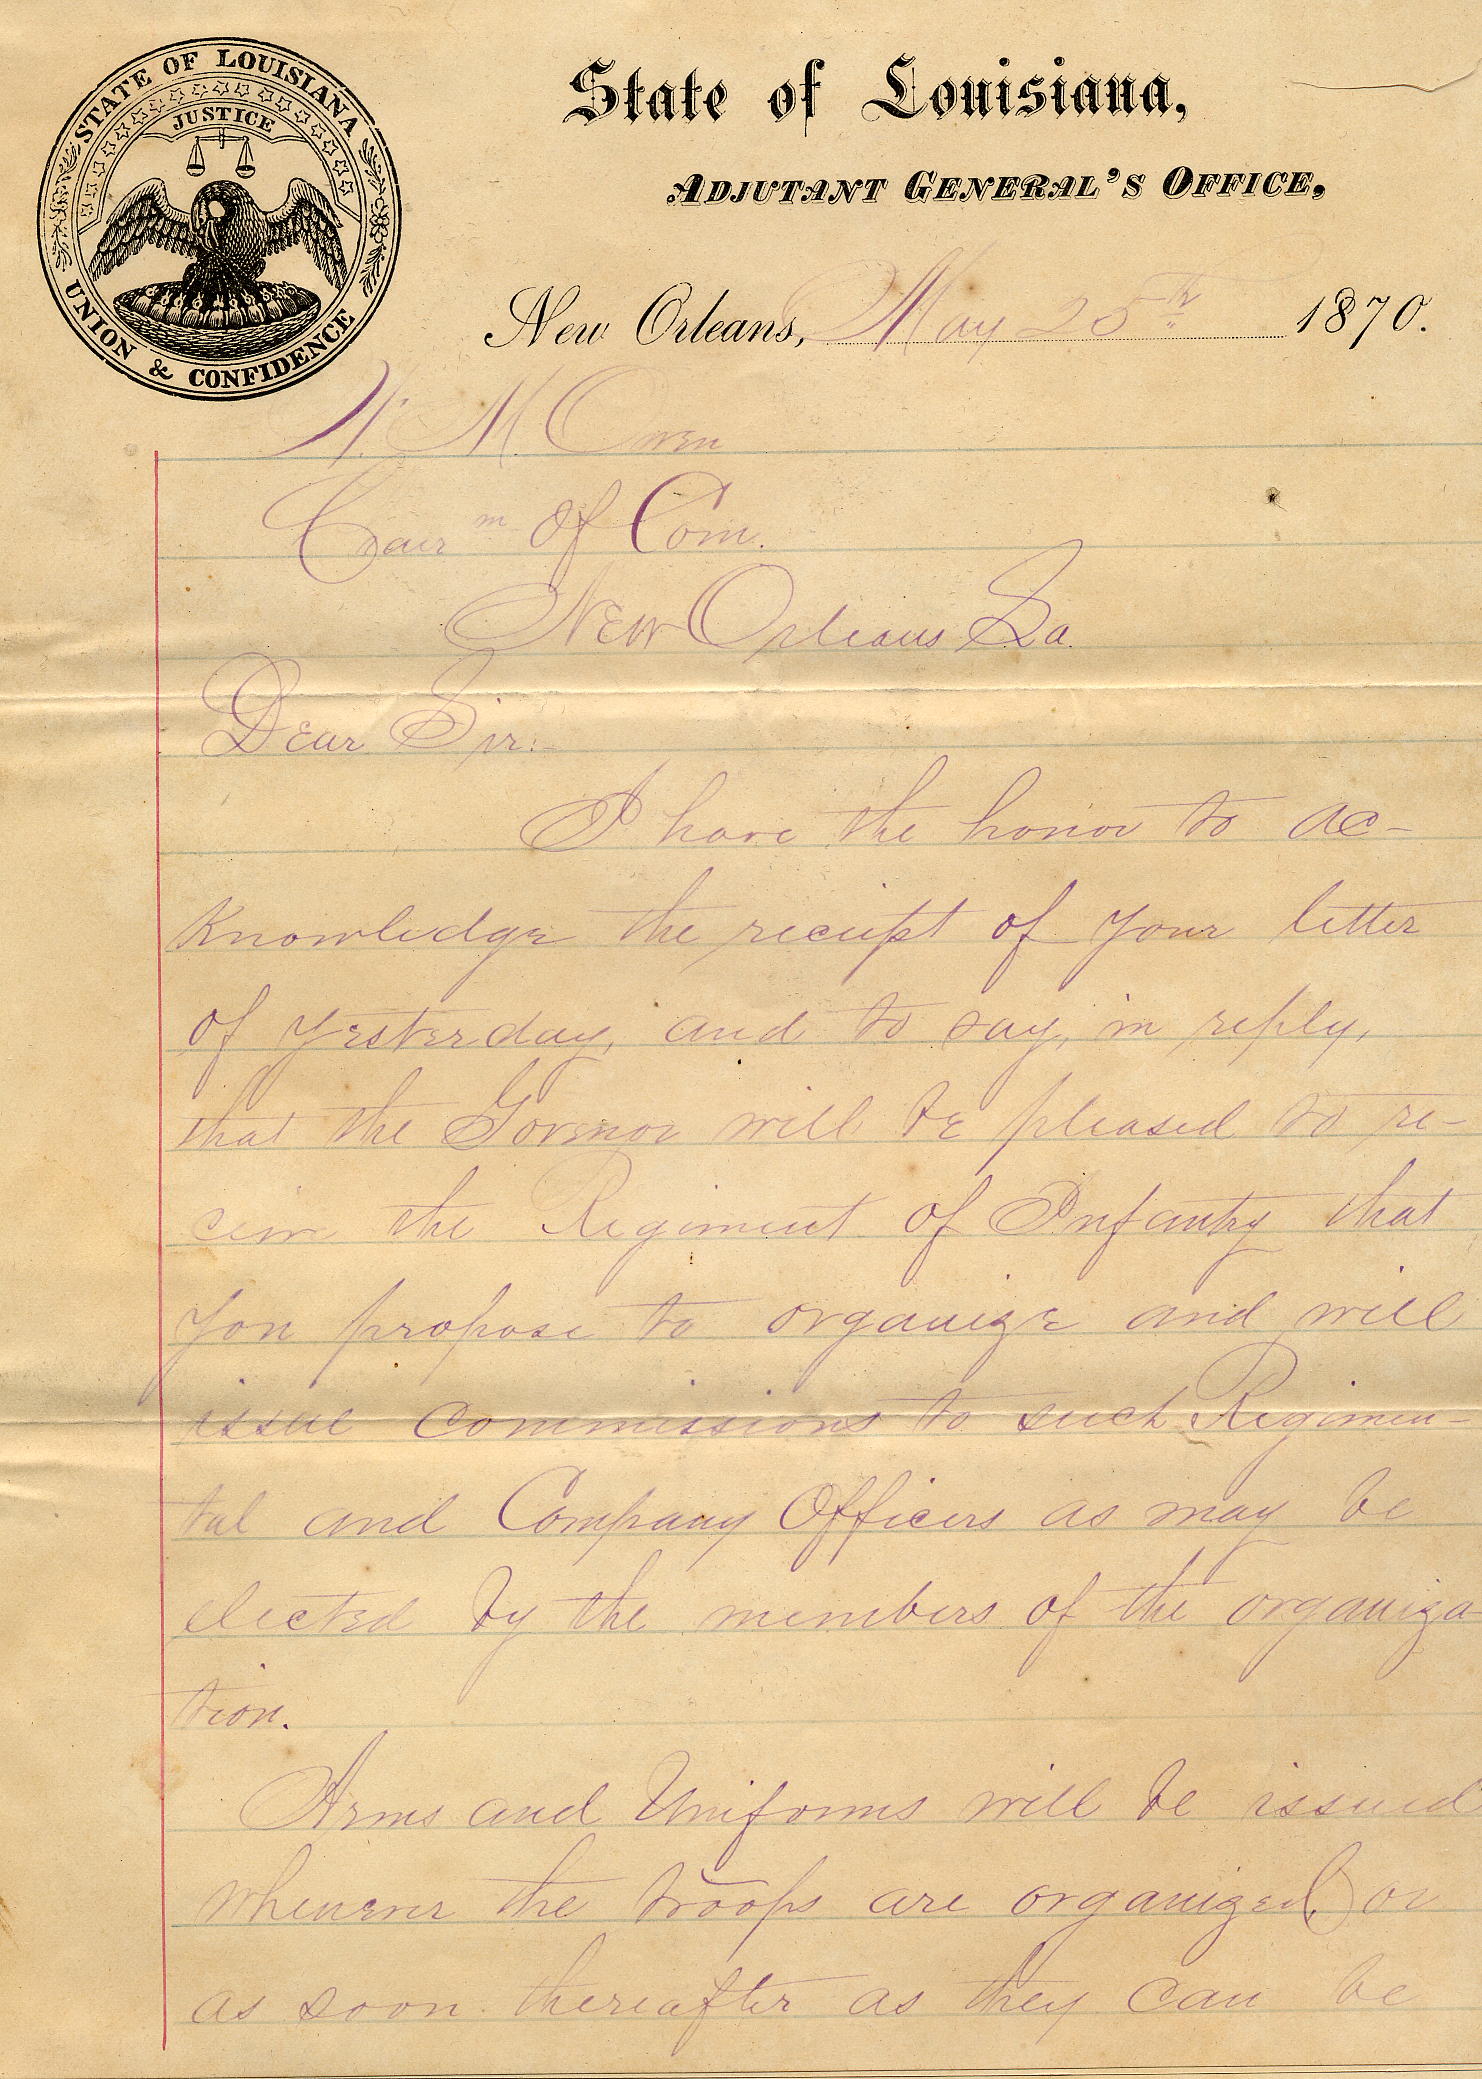 STATE OF LOUISIANA
JUSTICE
UNION & CONFIDENCE
State of Louisiana,
ADJUTANT GENERAL'S OFFICE,
New Orleans, May 25th 1870.
W. M. Owen
Chairm of Com.
New Orleans La.
Dear Sir:-
I have the honor to ac-
knowledge the receipt of your letter
of yesterday, and to say, in reply,
that the Govenor will be pleased to re-
ceive the Regiment of Infantry that
you propose to organize and will
issue commissions to such Regimen-
tal and Company Officers as may be
elected by the members of the organiza-
tion.
Arms and Uniforms will be issued
whenever the troops are organized, or
as soon thereafter as they can be